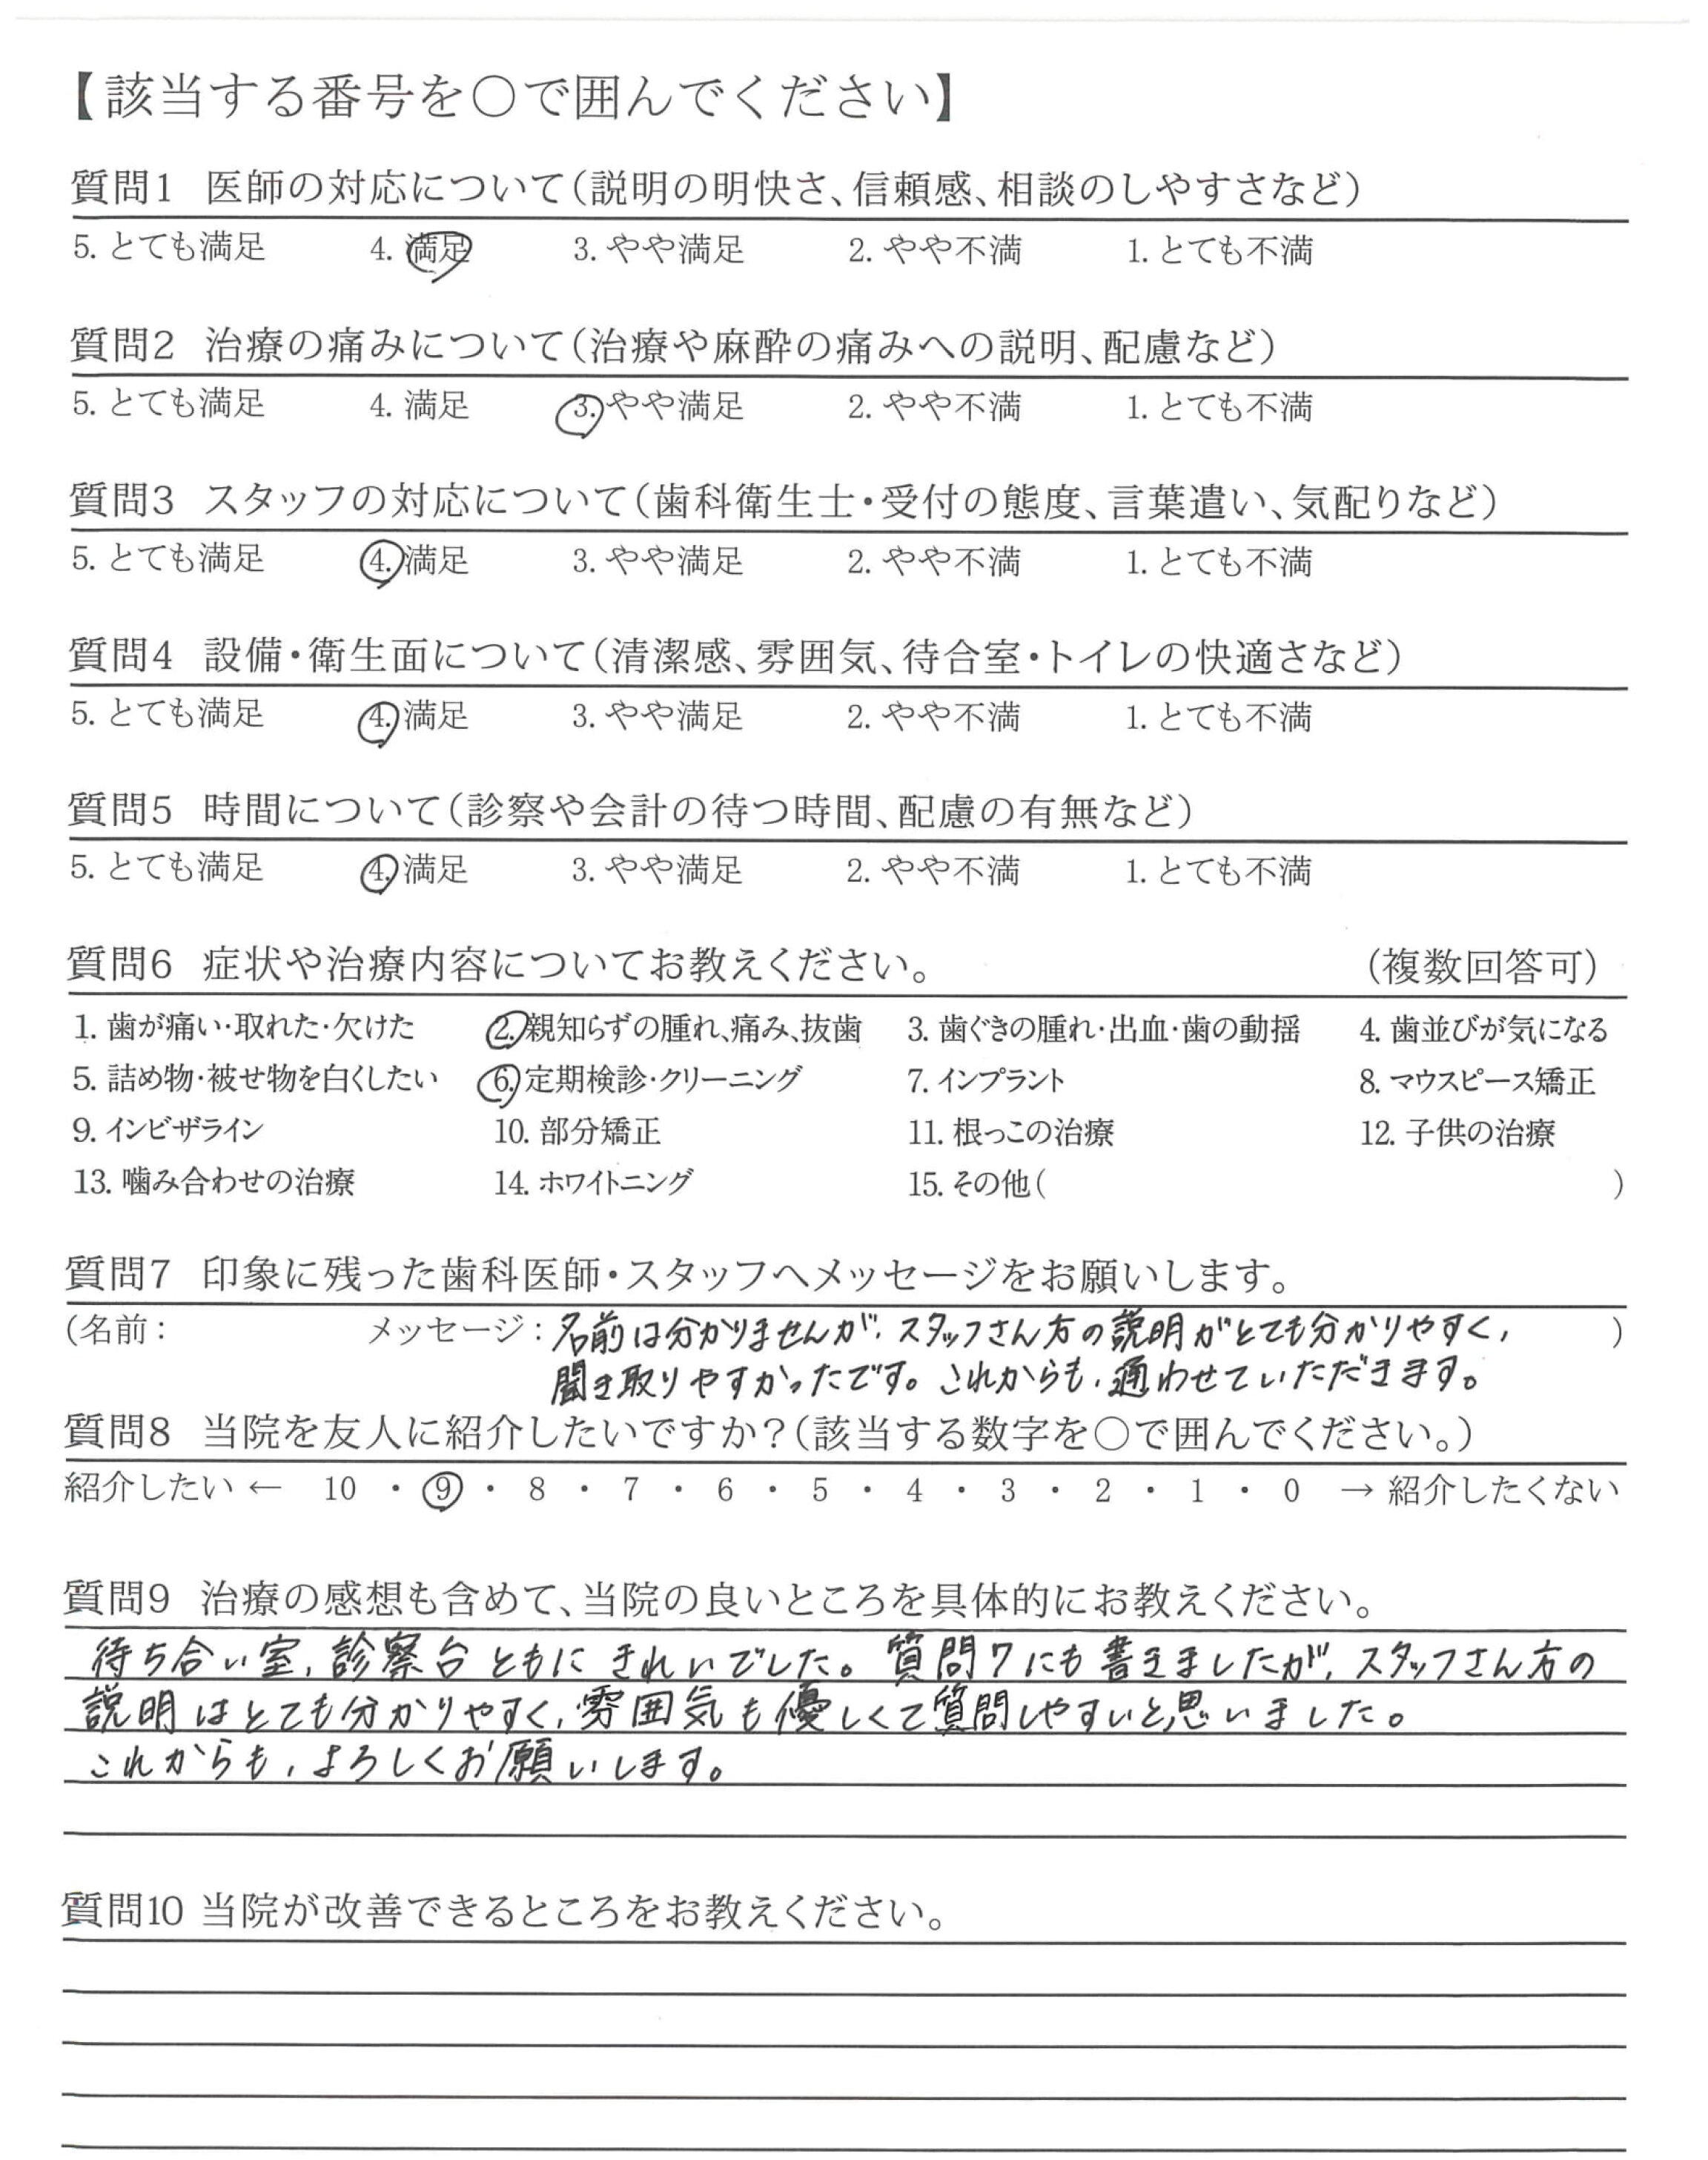 【該当する番号を○で囲んでください】
質問1 医師の対応について(説明の明快さ、信頼感、相談のしやすさなど)
5. とても満足 4. 満足 3. やや満足 2. やや不満 1. とても不満
質問2 治療の痛みについて(治療や麻酔の痛みへの説明、配慮など)
5. とても満足 4. 満足 3. やや満足 2. やや不満 1. とても不満
質問3 スタッフの対応について(歯科衛生士・受付の態度、言葉遣い、気配りなど)
5. とても満足 4. 満足 3. やや満足 2. やや不満 1. とても不満
質問4 設備・衛生面について(清潔感、雰囲気、待合室・トイレの快適さなど)
5. とても満足 4. 満足 3. やや満足 2. やや不満 1. とても不満
質問5 時間について(診察や会計の待つ時間、配慮の有無など)
5. とても満足 4. 満足 3. やや満足 2. やや不満 1. とても不満
質問6 症状や治療内容についてお教えください。 (複数回答可)
1. 歯が痛い・取れた・欠けた 2. 親知らずの腫れ、痛み、抜歯 3. 歯ぐきの腫れ・出血・歯の動揺 4. 歯並びが気になる
5. 詰め物・被せ物を白くしたい 6. 定期検診・クリーニング 7. インプラント 8. マウスピース矯正
9. インビザライン 10. 部分矯正 11. 根っこの治療 12. 子供の治療
13. 噛み合わせの治療 14. ホワイトニング 15. その他( )
質問7 印象に残った歯科医師・スタッフへメッセージをお願いします。
(名前: メッセージ: 名前は分かりませんが、スタッフさん方の説明がとても分かりやすく、 )
聞き取りやすかったです。これからも、通わせていただきます。
質問8 当院を友人に紹介したいですか?(該当する数字を○で囲んでください。)
紹介したい ← 10 ・ 9 ・ 8 ・ 7 ・ 6 ・ 5 ・ 4 ・ 3 ・ 2 ・ 1 ・ 0 → 紹介したくない
質問9 治療の感想も含めて、当院の良いところを具体的にお教えください。
待ち合い室、診察台ともにきれいでした。質問7にも書きましたが、スタッフさん方の
説明はとても分かりやすく、雰囲気も優しくて質問しやすいと思いました。
これからも、よろしくお願いします。
質問10 当院が改善できるところをお教えください。